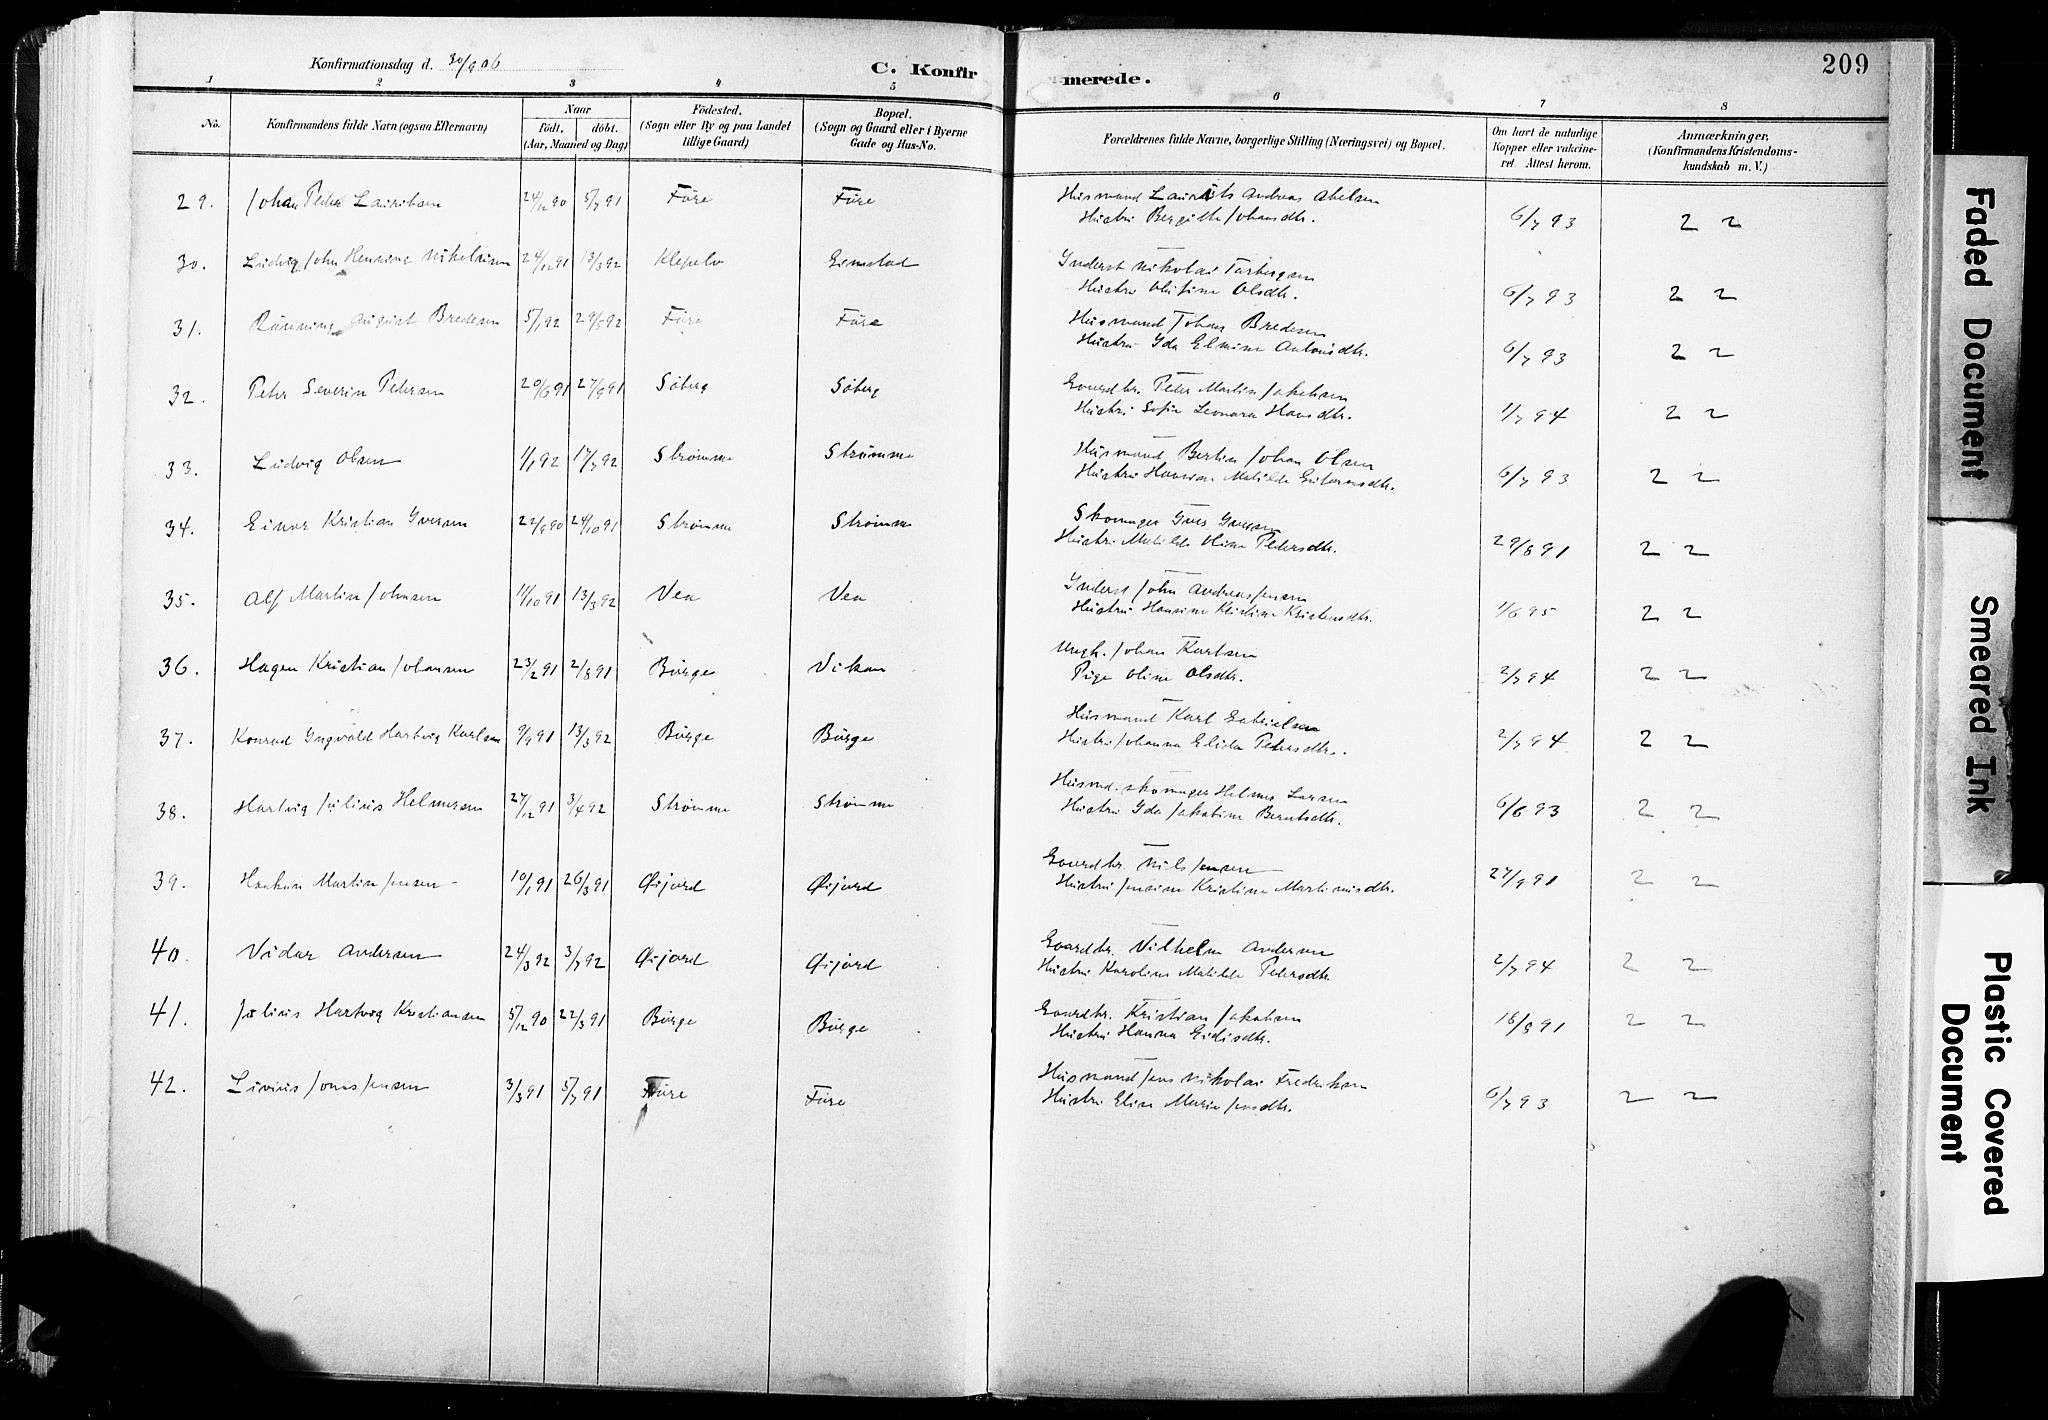 Konfirmationsdag d. 30/9 06
C. Konfirmerede.
209
1 2 3 4 5 6 7 8
No. Konfirmandens fulde Navn (ogsaa Efternavn) Naar født. døbt. (Aar, Maaned og Dag) Fødested. (Sogn eller By og paa Landet tillige Gaard) Bopæl. (Sogn og Gaard eller i Byerne Gade og Hus-No. Forældrenes fulde Navne, borgerlige Stilling (Næringsvei) og Bopæl. Om havt de naturlige Kopper eller vakcineret. Attest herom. Anmærkninger. (Konfirmandens Kristendomskundskab m. V.)
29. Johan Peder Lauritsen 24/12 90 5/7 91 Füre Füre Husmand Laurits Andreas Abelsen
Hustru Bergitte Johansdtr. 6/7 93 2 2
30. Ludvig John Henning Nikolaisen 24/12 91 13/3 92 Klepelv Eimstad Inderst Nikolai Torbergsen
Hustru Olufine Olsdtr. 6/7 93 2 2
31. Rünning August Bredesen 5/1 92 29/5 92 Füre Füre Husmand Johan Bredesen
Hustru Ida Elmine Antonsdtr. 6/7 93 2 2
32. Peter Severin Pedersen 20/6 91 27/9 91 Søberg Søberg Gaardbr. Peter Martin Jakobsen
Hustru Sofie Leonora Hansdtr. 1/7 94 2 2
33. Ludvig Olsen 1/1 92 17/7 92 Strømme Strømme Husmand Bertin Johan Olsen
Hustru Matilde 6/7 93 2 2
34. Einar Kristian Iversen 22/9 90 24/10 91 Strømme Strømme Skomager Iver Iversen
Hustru Matilde Oline Pedersdtr. 29/8 91 2 2
35. Alf Martin Johnsen 11/10 91 13/3 92 Vea Vea Inderst John Andreas Jensen
Hustru Hansine Kristine Kristensdtr. 1/6 95 2 2
36. Hagen Kristian Johansen 23/2 91 2/8 91 Bürge Vikan Ungk. Johan Karlsen
Pige Oline Olsdtr. 2/7 94 2 2
37. Konrad Ingvald Hartvig Karlsen 9/9 91 13/3 92 Bürge Bürge Husmand Karl Gabrielsen
Hustru Johanna Elida Pedersdtr. 2/7 94 2 2
38. Hartvig Julius Helmersen 27/12 91 3/4 92 Strømme Strømme Husmd. skomager Helmer Larsen
Hustru Ida Jakobine Berntsdtr. 6/6 93 2 2
39. Haakon Martin Jensen 10/1 91 26/3 91 Øijord Øijord Gaardbr. Nils Jensen
Hustru Jensine Kristine Martinusdtr. 27/9 91 2 2
40. Vidar Andersen 24/3 92 3/7 92 Øijord Øijord Gaardbr. Vilhelm Andersen
Hustru Karoline Matilde Pedersdtr. 2/7 94 2 2
41. Julius Hartvig Kristiansen 5/12 90 22/3 91 Bürge Bürge Gaardbr. Kristian Jakobsen
Hustru Hanna Eidisdtr. 16/8 91 2 2
42. Livius Jons Jensen 3/3 91 5/7 91 Füre Füre Husmand Jens Nikolai Fredriksen
Hustru Elise Marie Jensdtr. 6/7 93 2 2
Faded Document
Smeared Ink
Plastic Covered
Document